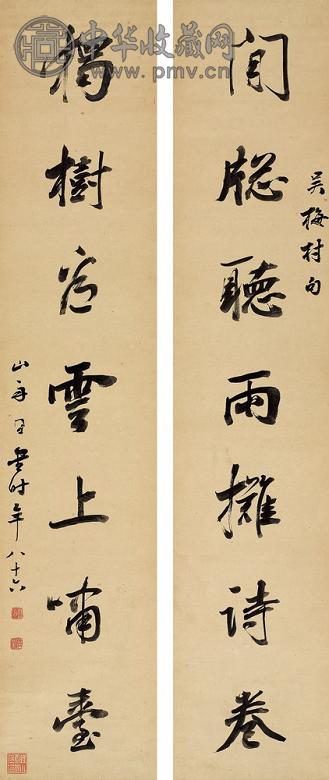 中华收藏网
www.pmv.cn
吴梅村句
閒牕聽雨攤詩卷
獨樹看雲上嘯臺
山舟同書時年八十六